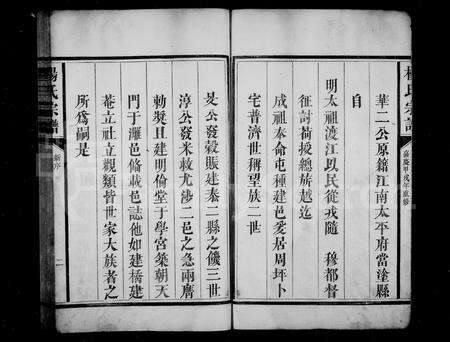 楊氏宗譜
嘉慶甲戌年重修
華二公原籍江南太平府當塗縣
自
明太祖渡江以民從戎隨　穆都督
征討荷授總旂越迄
成祖奉命屯種建邑爰居周坪卜
宅普濟世稱望族二世
旻公發穀賑建泰二縣之饑三世
淳公發米救尤涉二邑之急兩膺
勅獎且建明倫堂于學宮築朝天
門于濉邑脩載邑誌他如建橋建
菴立社立觀類皆世家大族者之
所爲嗣是
楊氏宗譜
新序
二